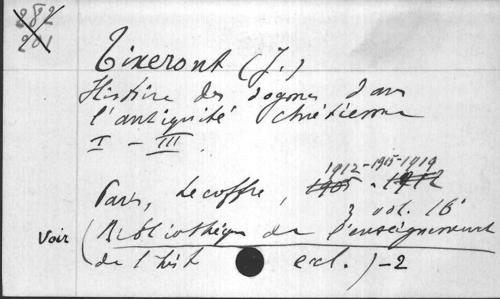 282
201
Tixeront (J.)
Histoire des dogmes dans
l'antiquité chrétienne
I - III.
1912-1915-1919
Paris, Lecoffre, 1905 - 1912
3 vol. 16°
Voir (Bibliothèque de l'enseignement
de l'hist eccl.) -2